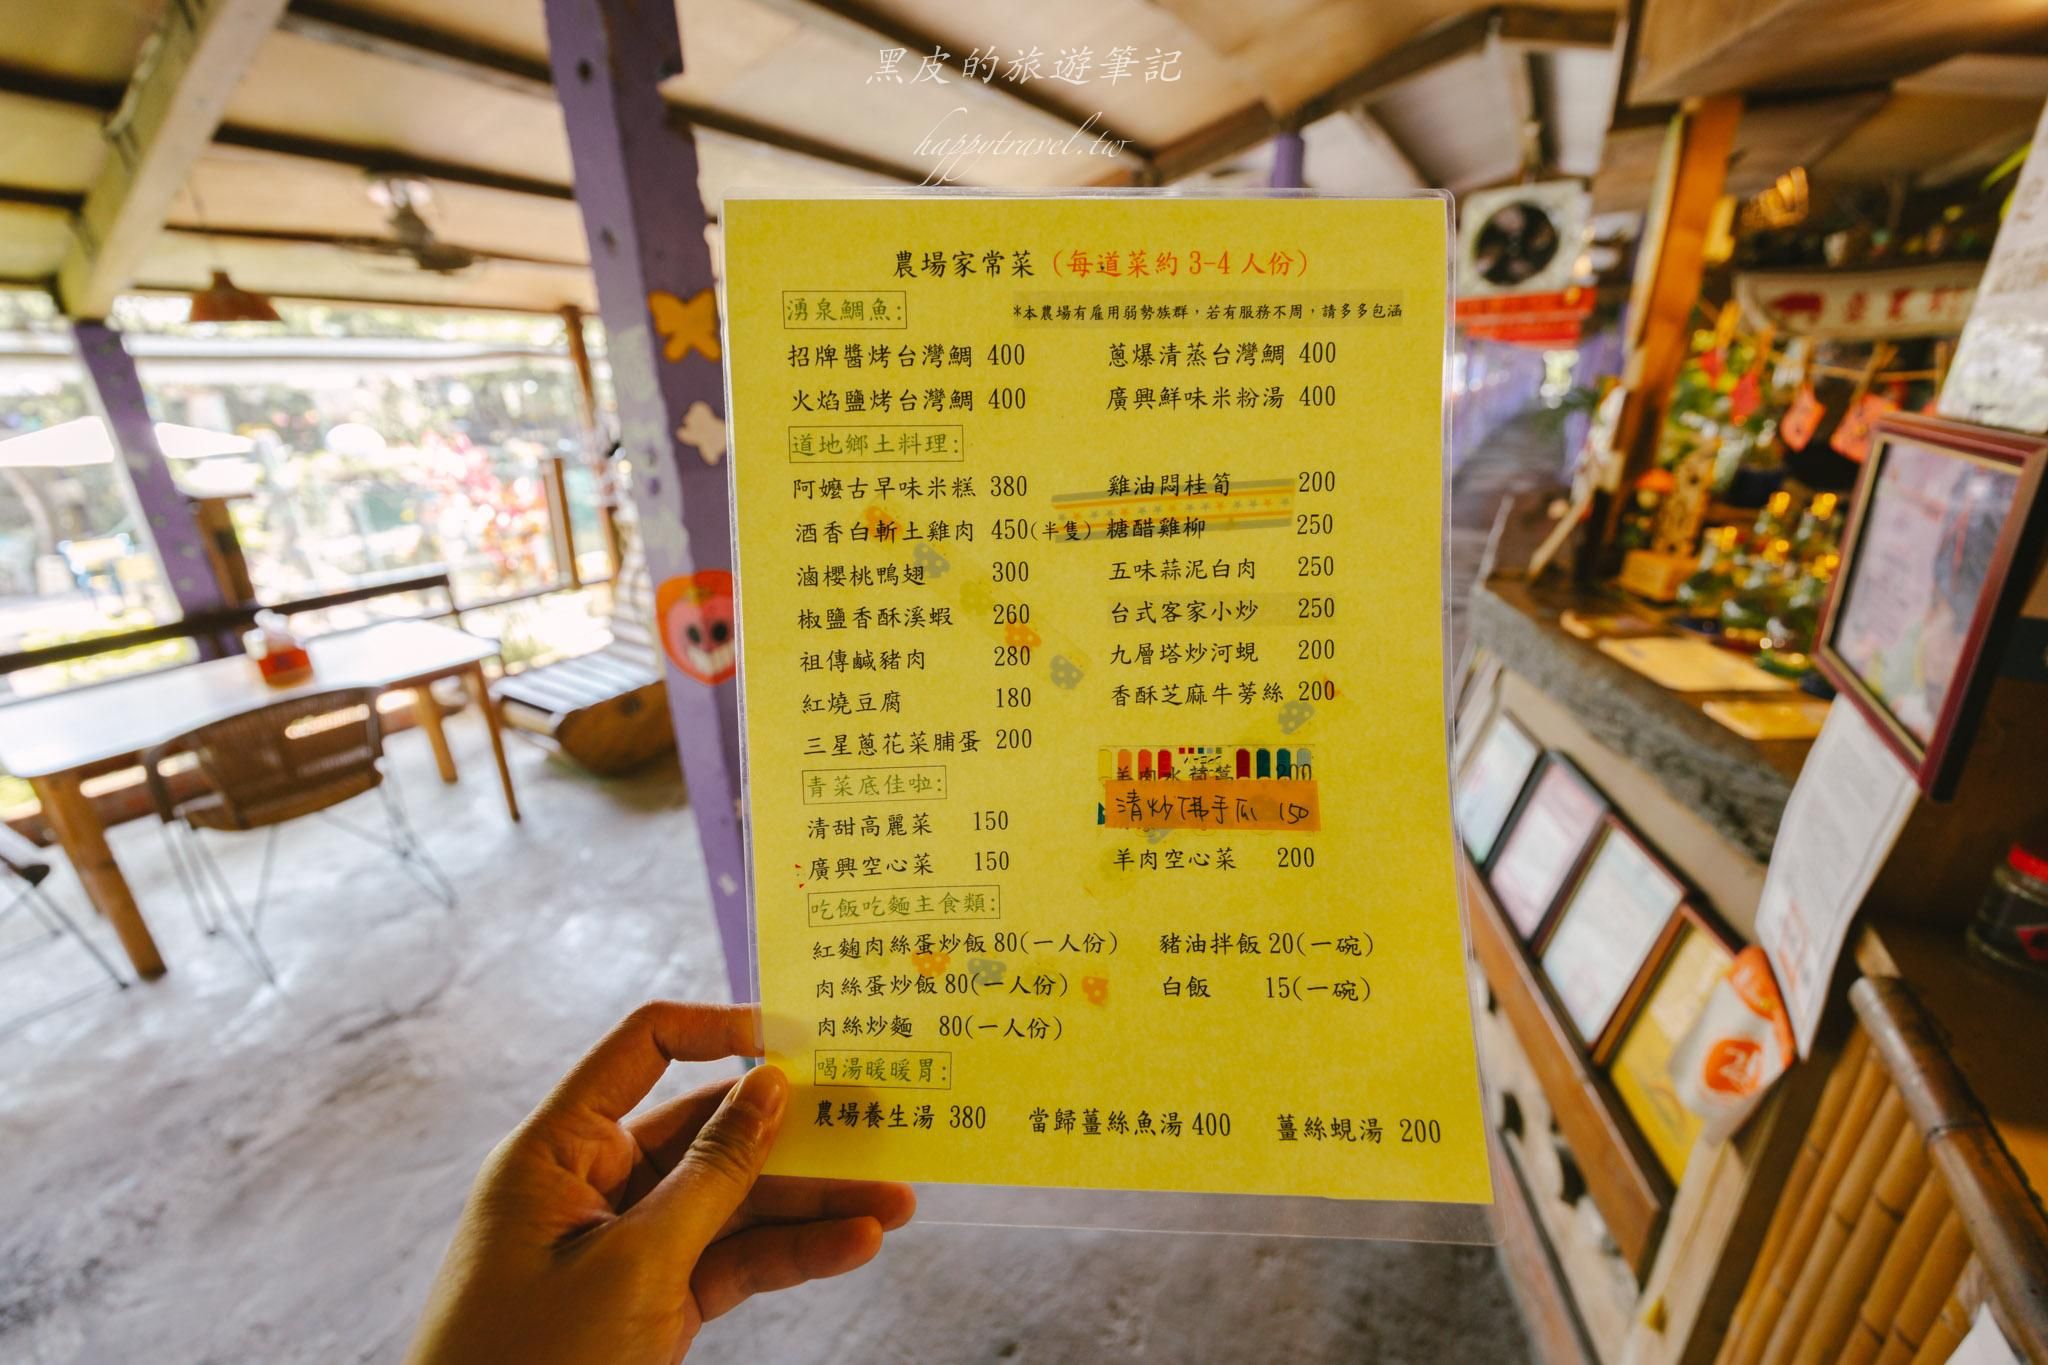 黑皮的旅遊筆記
happytravel.tw
農場家常菜 (每道菜約 3-4 人份)
湧泉鯛魚:
*本農場有雇用弱勢族群，若有服務不周，請多多包涵
招牌醬烤台灣鯛 400 蔥爆清蒸台灣鯛 400
火焰鹽烤台灣鯛 400 廣興鮮味米粉湯 400
道地鄉土料理:
阿嬤古早味米糕 380 雞油悶桂筍 200
酒香白斬土雞肉 450(半隻) 糖醋雞柳 250
滷櫻桃鴨翅 300 五味蒜泥白肉 250
椒鹽香酥溪蝦 260 台式客家小炒 250
祖傳鹹豬肉 280 九層塔炒河蜆 200
紅燒豆腐 180 香酥芝麻牛蒡絲 200
三星蔥花菜脯蛋 200
青菜底佳啦:
清甜高麗菜 150 清炒佛手瓜 150
廣興空心菜 150 羊肉空心菜 200
吃飯吃麵主食類:
紅麴肉絲蛋炒飯 80(一人份) 豬油拌飯 20(一碗)
肉絲蛋炒飯 80(一人份) 白飯 15(一碗)
肉絲炒麵 80(一人份)
喝湯暖暖胃:
農場養生湯 380 當歸薑絲魚湯 400 薑絲蜆湯 200